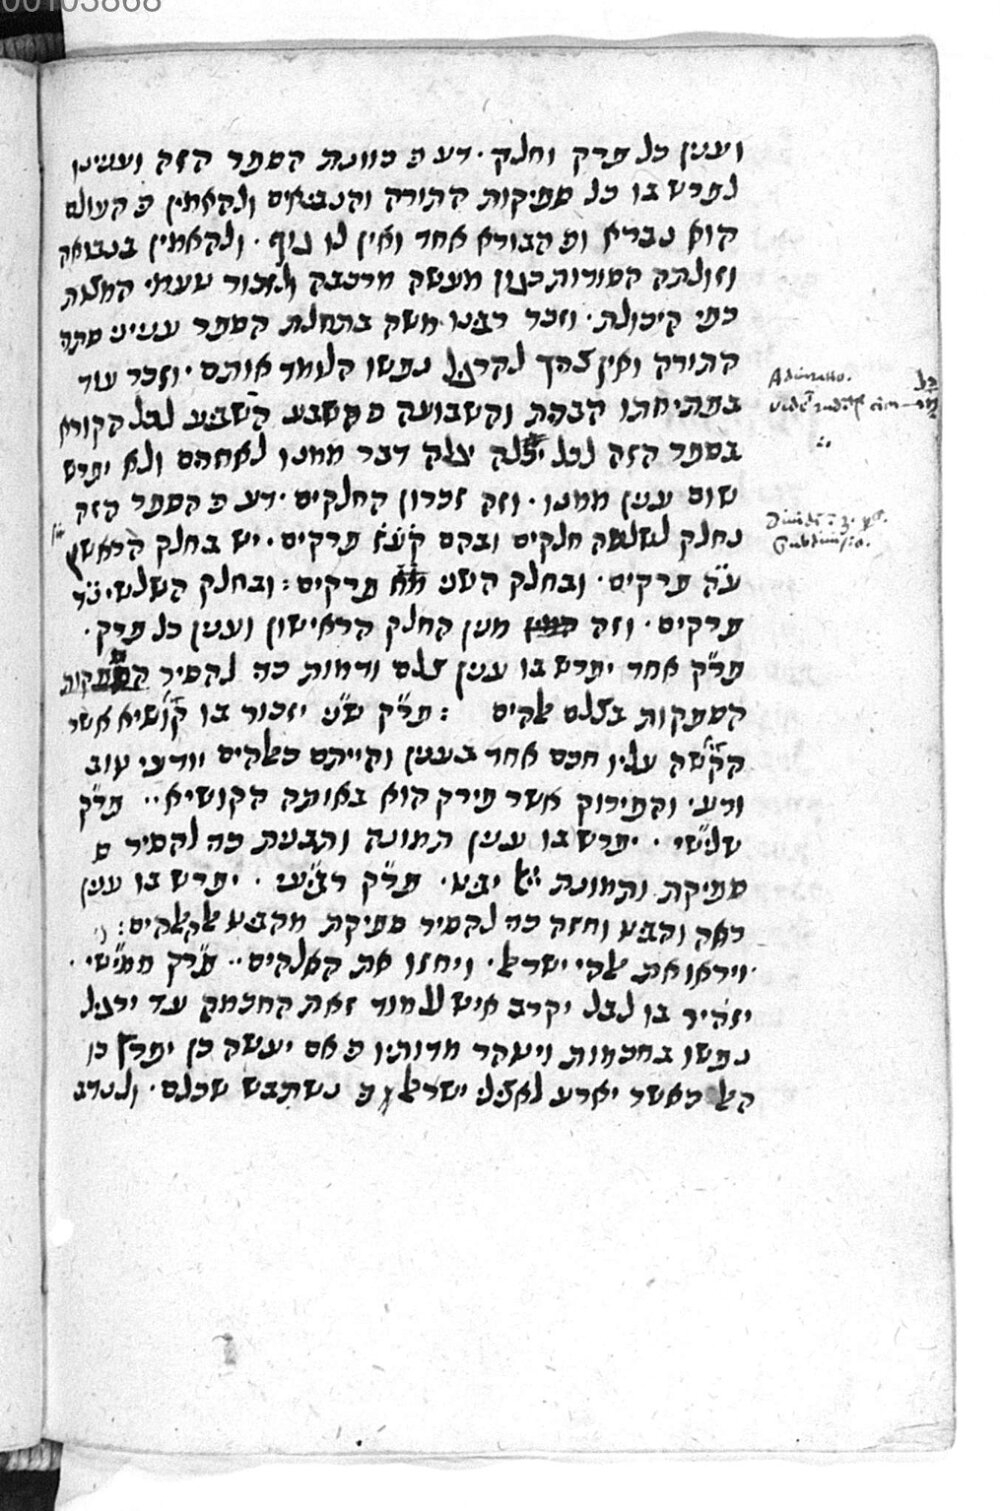 00103868
וענין כל פרק וחלק · דע כי כוונת הספר הזה ועניינו
לפרש בו כל ספיקות התורה והנביאים ולהאמין כי העולם
הוא נברא וכי הבורא אחד ואין לו גוף · ולהאמין בנבואה
וזולתה הסודות כגון מעשה מרכבה ולזכור טעמי המצות
כפי היכולת · וזכר רבינו משה בתחלת הספר עניני סתרי
התורה ואין צריך להרגיל נפשו הלומד אותם · וזכר עוד
בפתיחתו הבתת והשבועה כי משבע השביע לכל הקורא
בספר הזה לבל יגלה דבר ממנו לאחרים ולא יפרש
שום ענין ממנו · וזה זכרון החלקים · דע כי הספר הזה
נחלק לשלשה חלקים ובהם קע״ז פרקים · יש בחלק הראשון
ע״ה פרקים · ובחלק השני פרקים : ובחלק השלישי נ״ד
פרקים · וזה מנין החלק הראישון וענין כל פרק ·
פר״ק אחד יפרש בו ענין צלם ודמות כדי להסיר
הספקות בצלם אלהים : פר״ק שני יזכור בו קושיא אשר
הקשה עליו חכם אחד בענין והייתם כאלהים יודעי טוב
ורע · והתירוק אשר תירק הוא באותה הקושיא ·· פר״ק
שלישי · יפרש בו ענין תמונה ותבנית כדי להסיר
ספיקת ותמונת יי׳ יביט · פר״ק רביעי · יפרש בו ענין
ראה והביט וחזה כדי להסיר ספיקת מהביט אל האלהים :
ויראו את אלהי ישראל · ויחזו את האלהים ·· פרק חמישי ·
יזהיר בו לבל יקרב איש ללמוד זאת החכמה עד ירגיל
נפשו בחכמות ויעקר מדותיו כי אם יעשה כן יפרץ בו
האל כאשר יארע לאצילי ישראל כי נשתבש שכלם · ולנדב